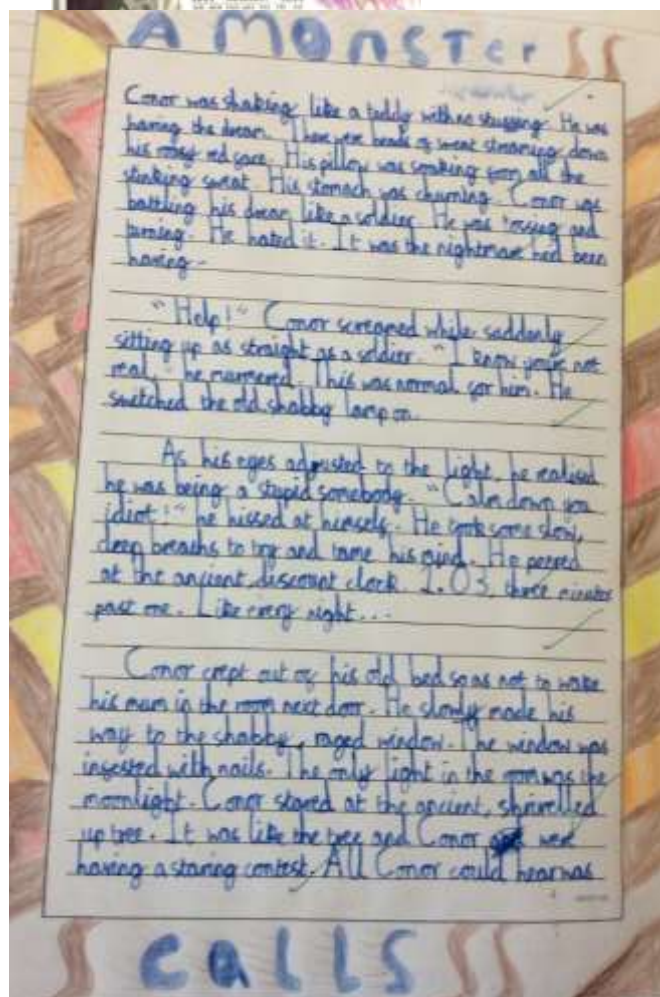 A MONSTER
Conor was shaking like a teddy with no stuffing. He was
having the dream. There were beads of sweat streaming down
his rosy red face. His pillow was soaking from all the
stinking sweat. His stomach was churning. Conor was
battling his dream like a soldier. He was tossing and
turning. He hated it. It was the nightmare he'd been
having.
"Help!" Conor screamed while saddenly
sitting up as straight as a soldier. "I know you're not
real," he murmered. This was normal for him. He
switched the old shabby lamp on.
As his eyes adjusted to the light, he realised
he was being a stupid somebody. "Calm down you
idiot!" he hissed at himself. He took some slow,
deep breaths to try and tame his mind. He peered
at the ancient, discount clock. 1.03, three minutes
past one. Like every night...
Conor crept out of his old bed so as not to wake
his mum in the room next door. He slowly made his
way to the shabby, raged window. The window was
infested with nails. The only light in the room was the
moonlight. Conor stared at the ancient, shrivelled
up tree. It was like the tree and Conor were
having a staring contest. All Conor could hear was
CALLS